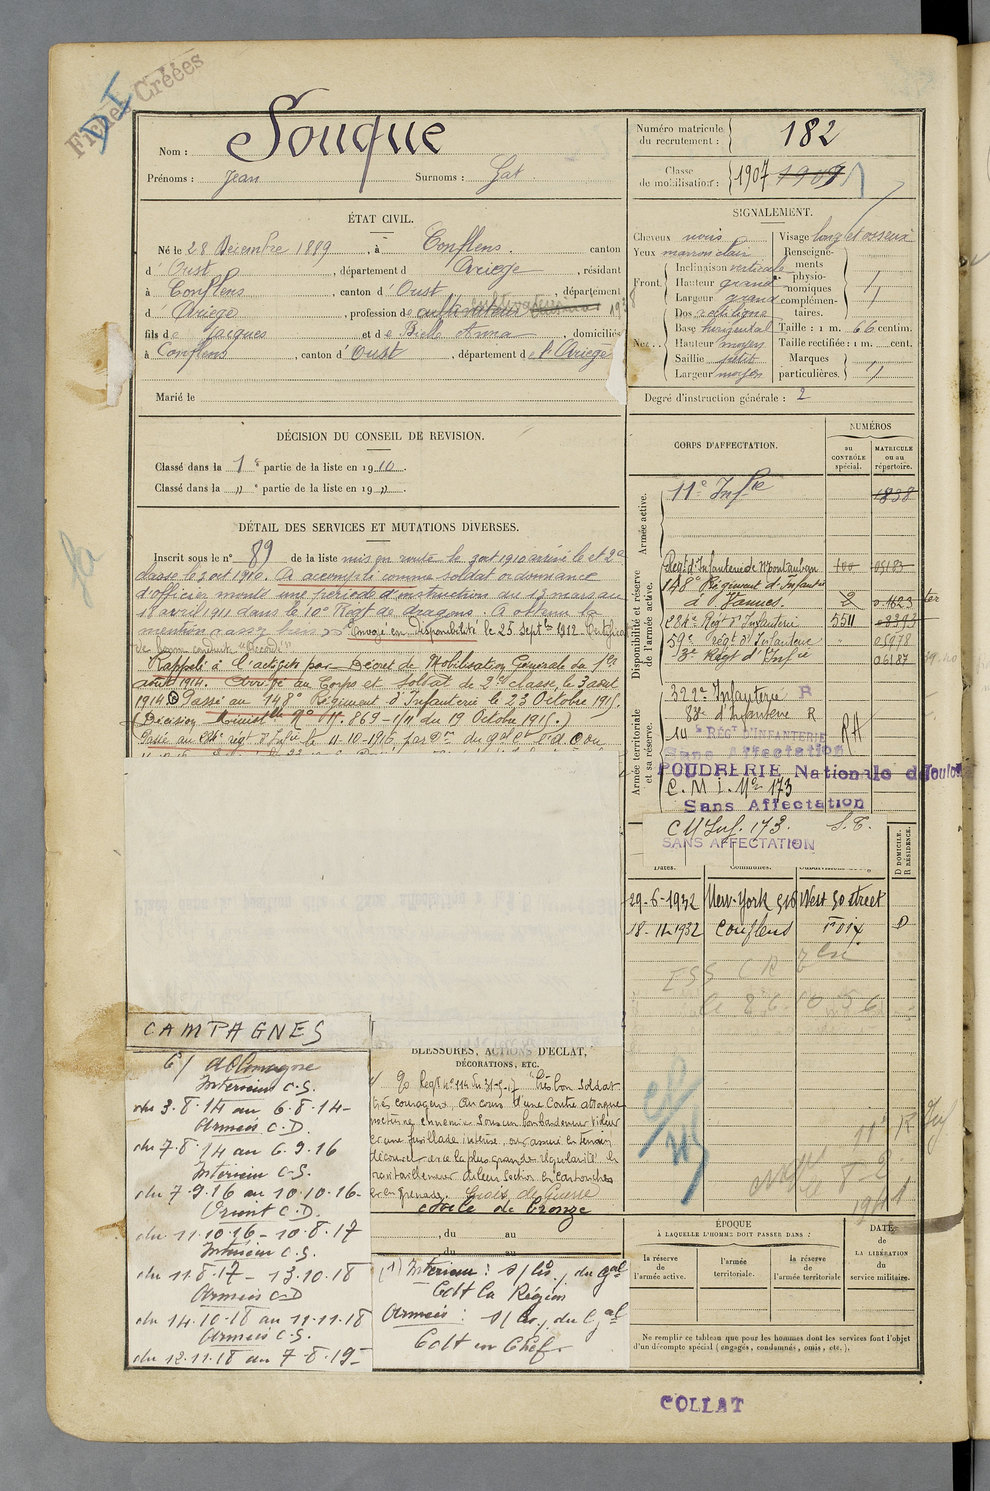 Fiches Créées
Nom : Souque
Prénoms : Jean Surnoms : Gat
Numéro matricule du recrutement : 182
Classe de mobilisation : 1907 1909
ÉTAT CIVIL.
Né le 28 Décembre 1889, à Conflens, canton
d'Oust, département d Ariège, résidant
à Conflens, canton d'Oust, département
d'Ariège, profession de cultivateur
fils de Jacques et de Bielle Anna, domiciliés
à Conflens, canton d'Oust, département de l'Ariège
Marié le
SIGNALEMENT.
Cheveux noirs Visage long et osseux
Yeux marron clair
Front. Inclinaison verticale
Hauteur grand
Largeur grand
Nez .. Dos rectiligne
Base horizontal
Hauteur moyen
Saillie petit
Largeur moyen
Renseignements physionomiques complémentaires. "
Taille : 1 m. 66 centim.
Taille rectifiée : 1 m. cent.
Marques particulières. "
Degré d'instruction générale : 2
DÉCISION DU CONSEIL DE REVISION.
Classé dans la 1e partie de la liste en 1910.
Classé dans la " e partie de la liste en 19 ".
DÉTAIL DES SERVICES ET MUTATIONS DIVERSES.
Inscrit sous le n° 89 de la liste mis en route le 3 oct 1910 arrivé le et 2e
classe le 3 oct 1910. A accompli comme soldat ordonnance
d'officier monté une période d'instruction du 13 mars au
18 avril 1911 dans le 10e Régt de dragons. A obtenu la
mention "assez bien". Envoyé en disponibilité le 25 Septbre 1912. Certificat
de bonne conduite "Accordé"
Rappelé à l'activité par Décret de Mobilisation Générale du 1er
août 1914. Arrivé au Corps et Soldat de 2me classe, le 3 août
1914 Passé au 148e Régiment d'Infanterie le 23 Octobre 1915.
(Décision Ministlle No 11.869-1/11 du 19 Octobre 1915.)
Passé au 284e régt d'Infie le 11-10-1916 par
CORPS D'AFFECTATION.
NUMÉROS
au CONTRÔLE spécial.
MATRICULE ou au répertoire.
Armée active.
11e Infie 1838
Disponibilité et réserve de l'armée active.
Régt d'Infanterie de Montauban 100 05183
148e Régiment d'Infanterie
à Vannes. 2 01623 ter
284e Régt d'Infanterie 5511 08393
59e régt d'Infanterie 05978
3e Régt d'Infie 06187
Armée territoriale et sa réserve.
322e Infanterie R
83e d'Infanterie R
14e RÉGT D'INFANTERIE RA
Sans Affectation
POUDRERIE Nationale de Toulouse
C. M. I. No 173
Sans Affectation
C M Inf. 173. S.T.
SANS AFFECTATION
Dates. Communes.
D DOMICILE.
R RÉSIDENCE.
29-6-1932 New-York 518 West 50 street
18-11-1932 Conflens Foix D
CAMPAGNES
C/ Allemagne
Intérieur C.S.
du 3.8.14 au 6.8.14-
Armées C.D.
du 7.8.14 au 6.9.16
Intérieur C.S.
du 7.9.16 au 10.10.16-
Orient C.D.
du 11.10.16 - 10.8.17
Intérieur C.S.
du 11.8.17 - 13.10.18
Armées C.D
du 14.10.18 au 11.11.18
Armées C.S.
du 12.11.18 au 7.8.19-
BLESSURES, ACTIONS D'ÉCLAT,
DÉCORATIONS, ETC.
O Régt No 114 du 31-5-17 "Très bon Soldat
très courageux, au cours d'une Contre attaque
ennemie Sous un bombardement violent
et une fusillade intense, a assuré en terrain
découvert avec la plus grande régularité le
ravitaillement de leur Section en Cartouches
et en grenades. Croix de Guerre
étoile de bronze
, du au
, du au
(1) Intérieur : s/ les du Gal
Cdt la Région
Armées : s/ les du Gal
Cdt en Chef.
11e R Inf
1941
ÉPOQUE
À LAQUELLE L'HOMME DOIT PASSER DANS :
la réserve de l'armée active.
l'armée territoriale.
la réserve de l'armée territoriale
DATE de LA LIBÉRATION du service militaire.
Ne remplir ce tableau que pour les hommes dont les services font l'objet
d'un décompte spécial (engagés, condamnés, omis, etc.).
COLLAT